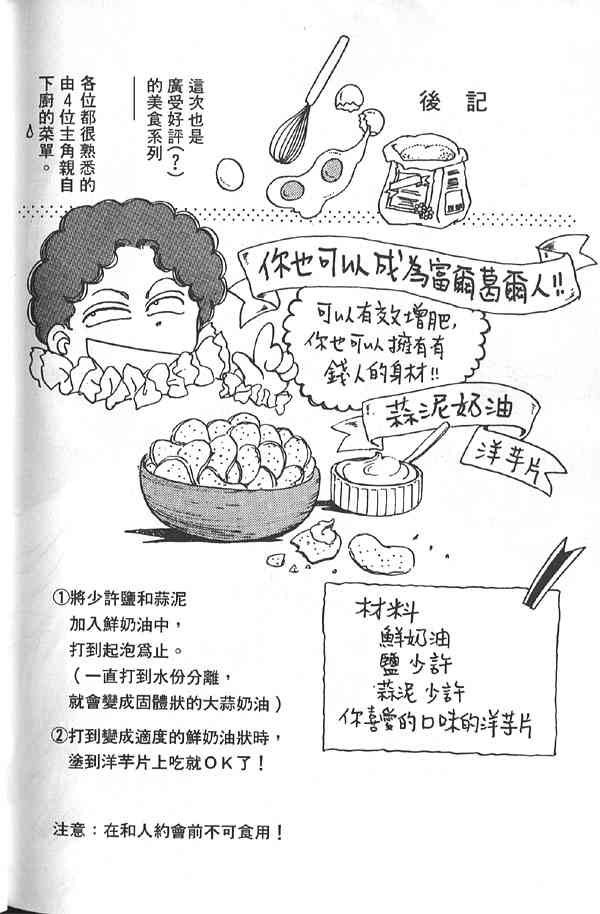 後記
這次也是
廣受好評(？)
的美食系列
各位都很熟悉的
由4位主角親自
下廚的菜單。
你也可以成為富爾葛爾人!!
可以有效增肥,
你也可以擁有有
錢人的身材!!
蒜泥奶油
洋芋片
①將少許鹽和蒜泥
加入鮮奶油中，
打到起泡爲止。
（一直打到水份分離，
就會變成固體狀的大蒜奶油）
②打到變成適度的鮮奶油狀時，
塗到洋芋片上吃就ＯＫ了！
材料
鮮奶油
鹽 少許
蒜泥 少許
你喜愛的口味的洋芋片
注意：在和人約會前不可食用！